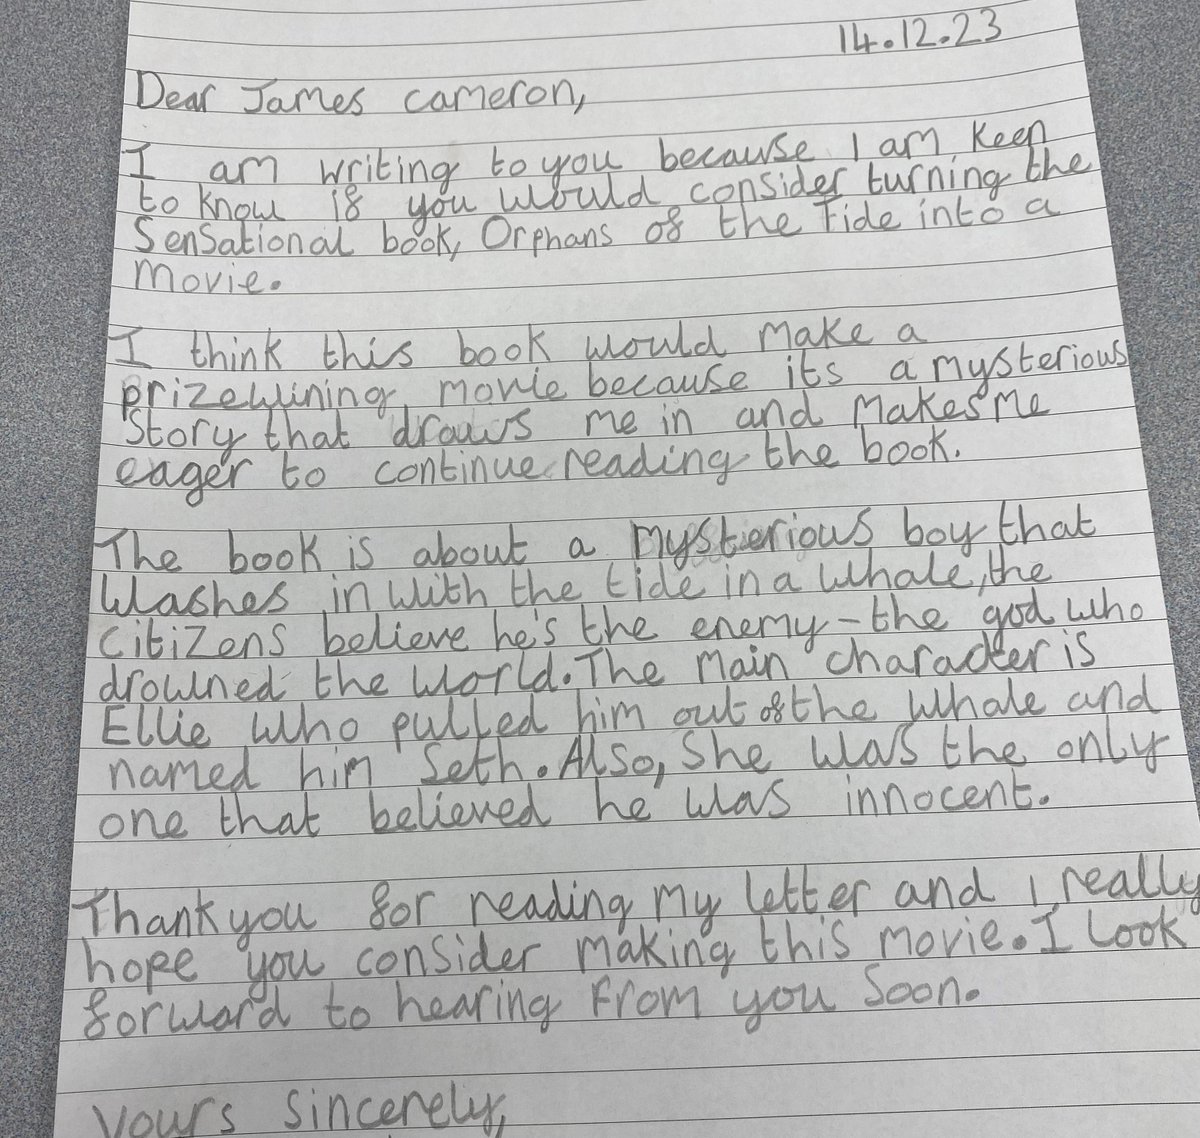 14.12.23
Dear James cameron,
I am writing to you because I am keen
to know if you would consider turning the
Sensational book, Orphans of the Tide into a
movie.
I think this book would make a
prizewining movie because its a mysterious
Story that draws me in and makes me
eager to continue reading the book.
The book is about a mysterious boy that
washes in with the tide in a whale, the
citizens believe he's the enemy - the god who
drowned the world. The main character is
Ellie who pulled him out of the whale and
named him Seth. Also, she was the only
one that believed he was innocent.
Thank you for reading my letter and I really
hope you consider making this movie. I look
forward to hearing from you soon.
Yours sincerely,